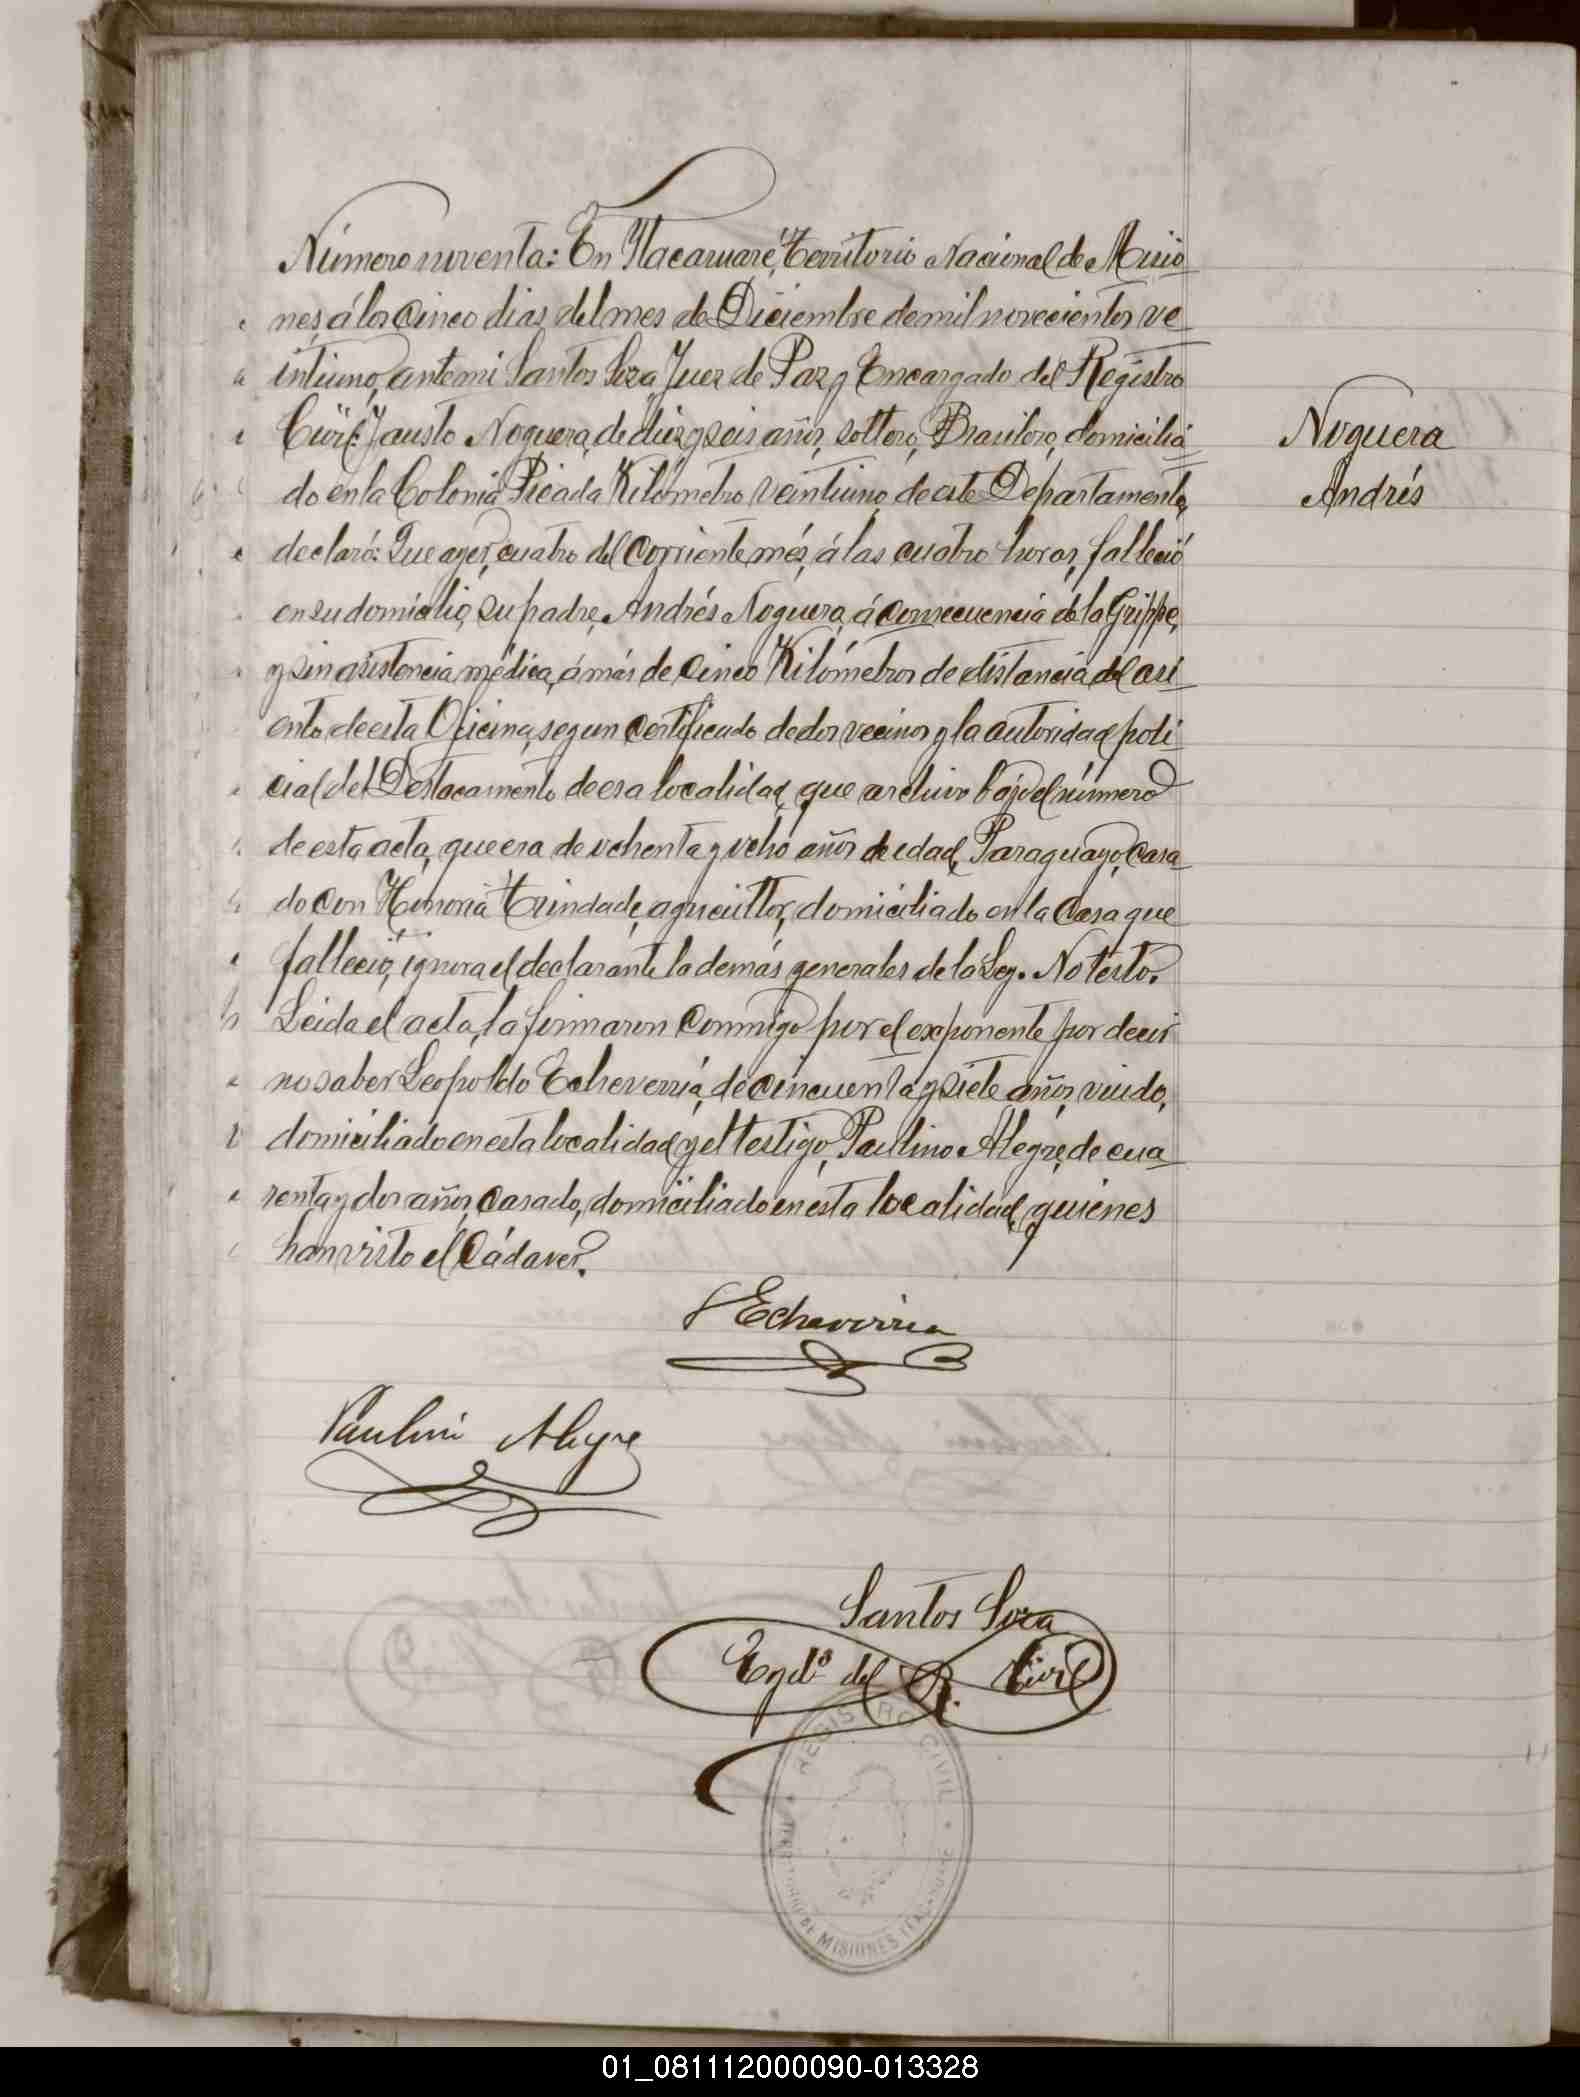 Número noventa: En Ytacaruaré, Territorio Nacional de Misio
nes, á los cinco dias del mes de Diciembre de mil novecientos ve
intiuno, ante mi Santos Soza, Juez de Paz y Encargado del Registro
Civil: Fausto Noguera, de diez y seis años, soltero, Brasilero, domicilia
do en la Colonia Picada Kilómetro veintiuno, de este Departamento,
declaró: Que ayer, cuatro del corriente més, á las cuatro horas, falleció
en su domicilio, su padre, Andrés Noguera, á consecuencia de la Grippe,
y sin asistencia médica, á más de cinco Kilómetros de distancia del asi
ento de esta Oficina, segun certificado de dos vecinos y la autoridad poli
cial del Destacamento de esa localidad, que archivo bajo el número
de esta acta, que era de ochenta y ocho años de edad, Paraguayo, casa
do con Honoria Trindade, agricultor, domiciliado en la casa que
falleció, ignora el declarante la demás generales de la Ley. No testó.
Leida el acta, la firmaron conmigo por el exponente por decir
no saber Leopoldo Echeverría, de cincuenta y siete años, viudo,
domiciliado en esta localidad y el testigo, Paulino Alegre, de cua
renta y dos años, casado, domiciliado en esta localidad, quienes
han visto el Cádaver.
Noguera
Andrés
LEcheverria
Paulino Alegre
Santos Soza
Engdo del R. Civil
REGISTRO CIVIL
TERRITORIO DE MISIONES ITACARUARE
01_081112000090-013328